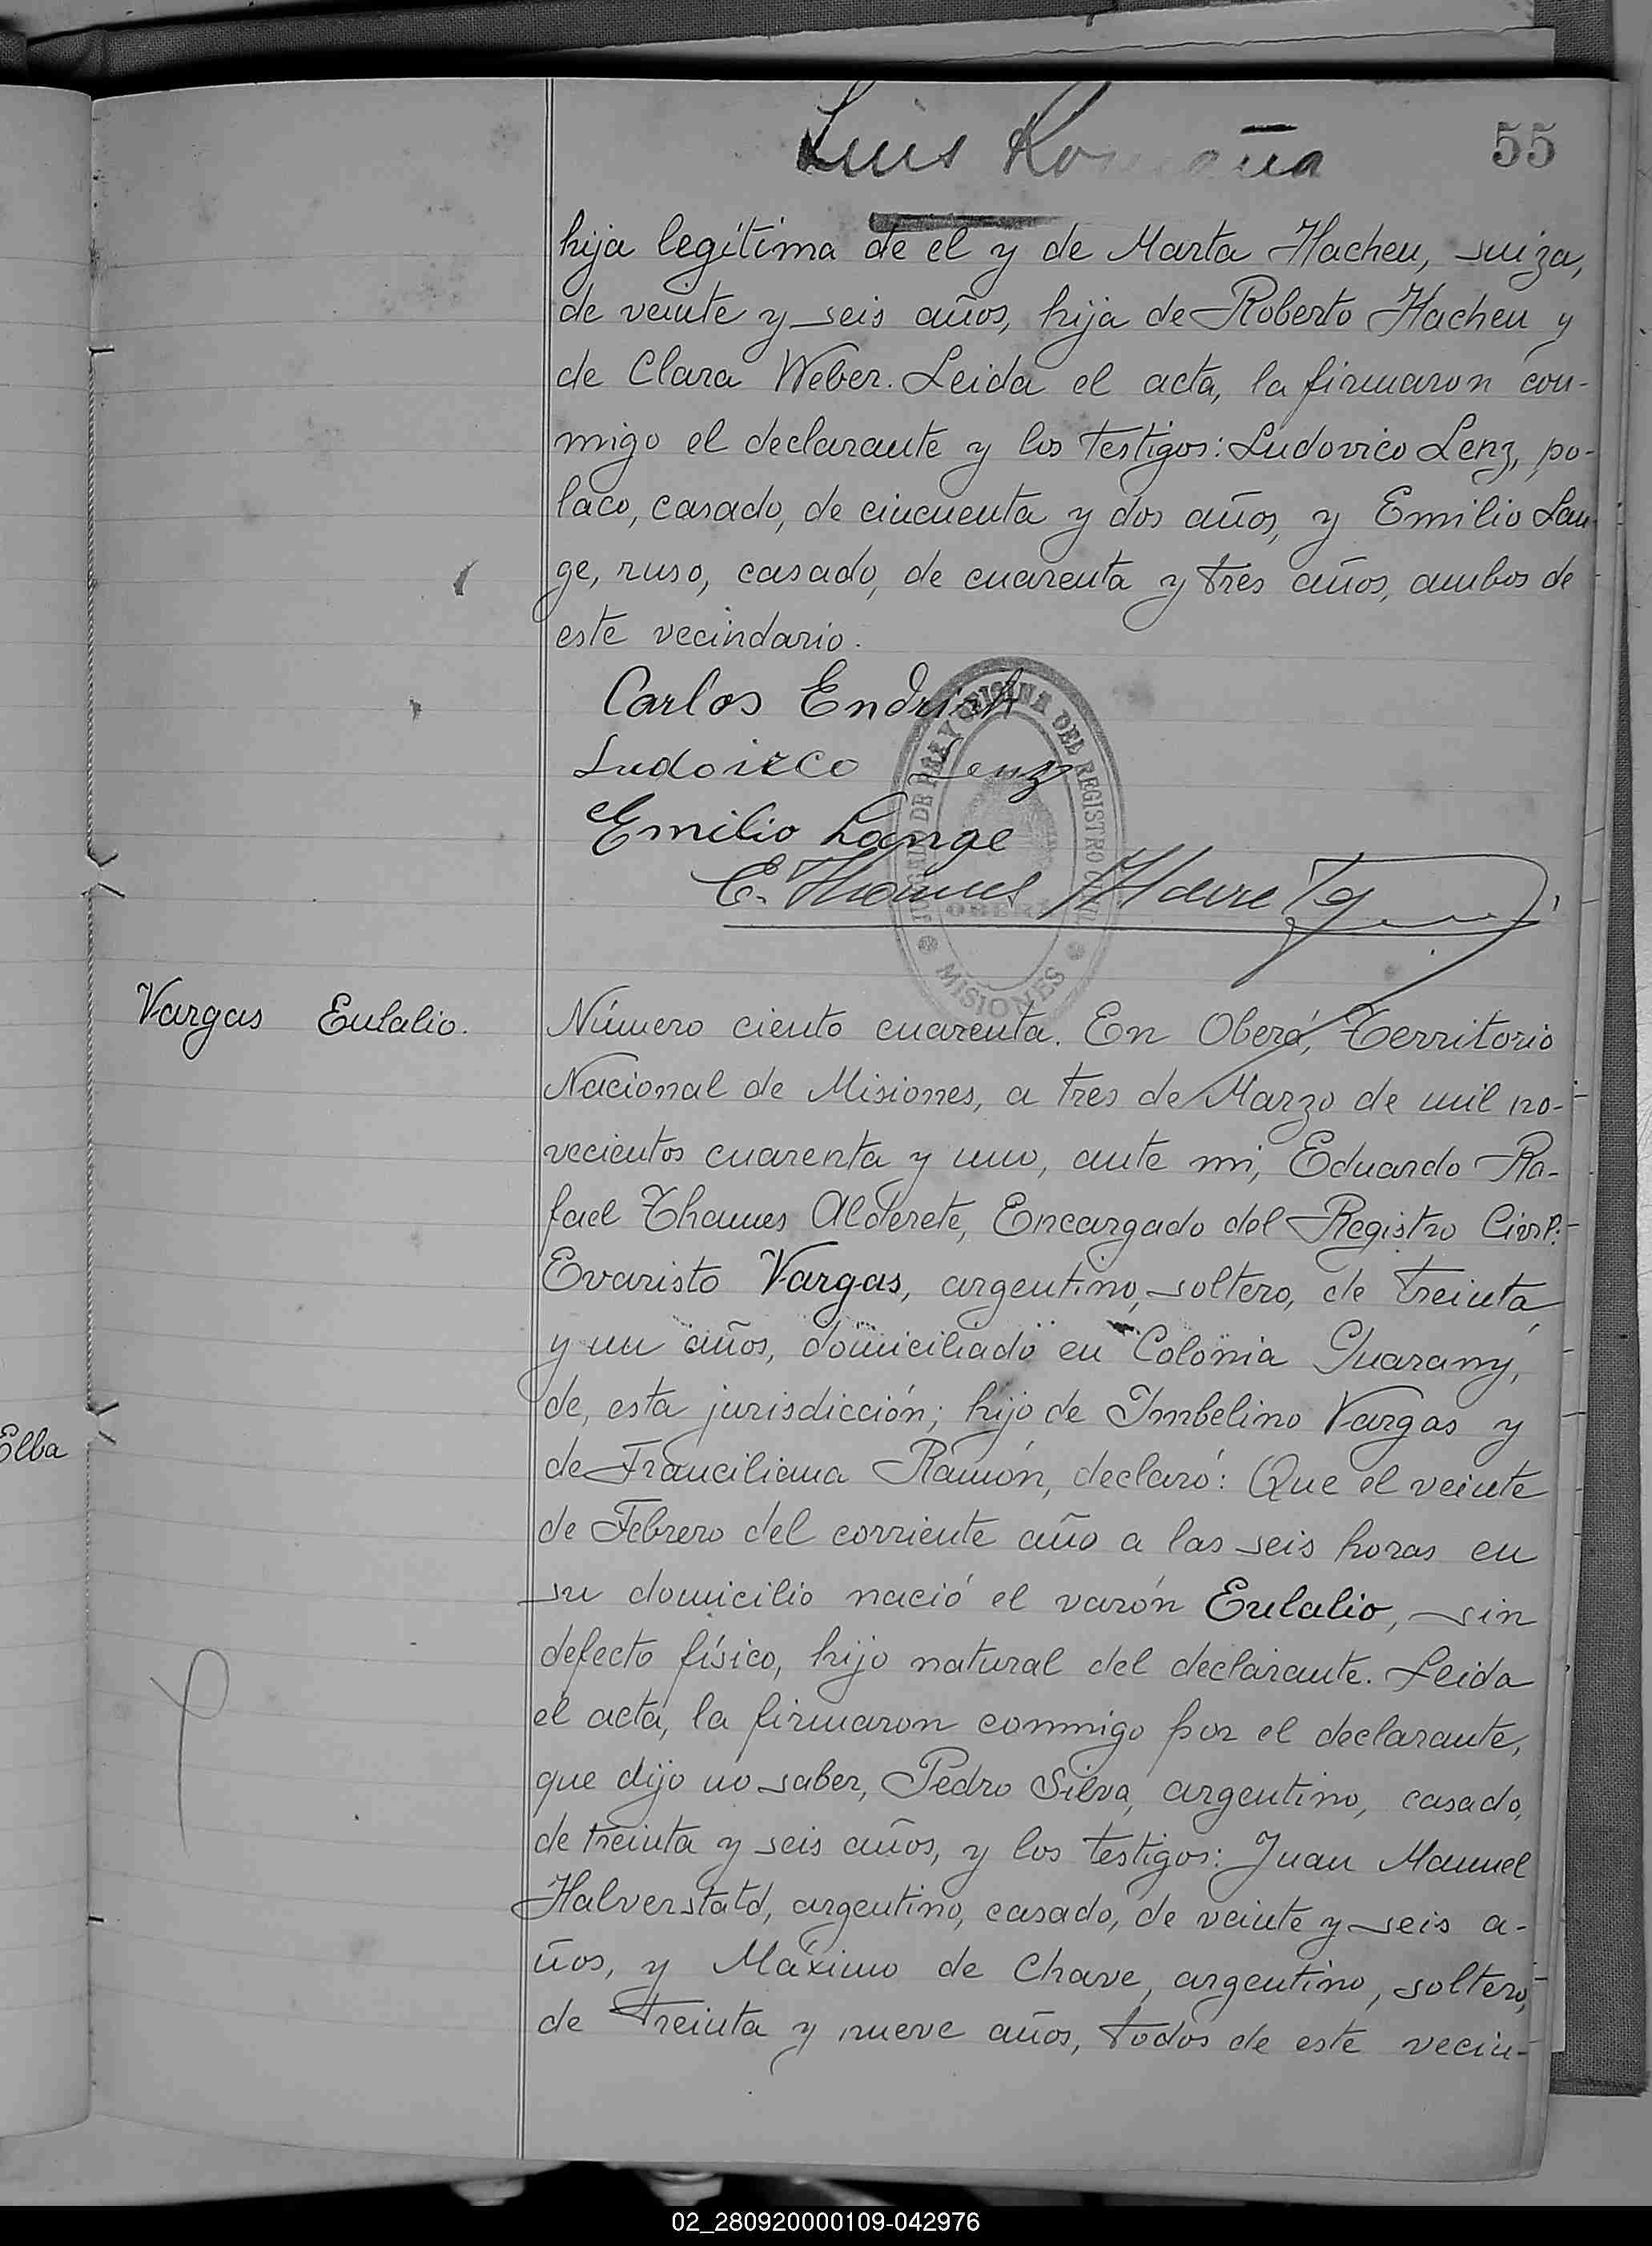 Luis Romaña
55
hija legítima de el y de Marta Hacheu, suiza,
de veinte y seis años, hija de Roberto Hacheu y
de Clara Weber. Leida el acta, la firmaron con-
migo el declarante y los testigos: Ludovico Lenz, po-
laco, casado, de cincuenta y dos años, y Emilio Lan-
ge, ruso, casado, de cuarenta y tres años, ambos de
este vecindario.
Carlos Endrish
Ludovico Lenz
Emilio Lange
E. Thames Alderete
DE PAZ Y OFICINA DEL REGISTRO CIVIL
OBERÁ
MISIONES
Vargas Eulalio.
Número ciento cuarenta. En Oberá, Territorio
Nacional de Misiones, a tres de Marzo de mil no-
vecientos cuarenta y uno, ante mi, Eduardo Ra-
fael Thames Alderete, Encargado del Registro Civil:
Evaristo Vargas, argentino, soltero, de treinta
y un años, domiciliado en Colonia Guarany,
de, esta jurisdicción; hijo de Imbelino Vargas y
de Franciliana Ramón, declaró: Que el veinte
de Febrero del corriente año a las seis horas en
su domicilio nació el varón Eulalio, sin
defecto físico, hijo natural del declarante. Leida
el acta, la firmaron conmigo por el declarante,
que dijo no saber, Pedro Silva, argentino, casado,
de treinta y seis años, y los testigos: Juan Manuel
Halverstatd, argentino, casado, de veinte y seis a-
ños, y Máximo de Chave, argentino, soltero,
de treinta y nueve años, todos de este vecin-
Elba
02_280920000109-042976